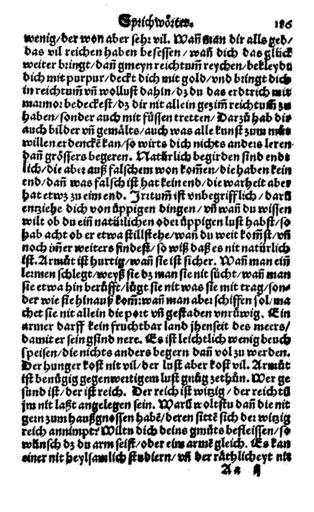 Sprichwörter. 186
wenig/der won aber sehr vil. Wañ man dir alls geb/
das vil reichen haben besessen/wañ dich das glück
weiter bringt/dañ gmeyn reichtum̃ reychen/bekleyd
dich mit purpur/deckt dich mit gold/vnd bringt dich
in reichtum̃ vñ wollust dahin/dz du das erdtrich mit
marmor bedeckest/dz dir nit allein gezim̃ reichtum̃ zu
haben/sonder auch mit füssen tretten/Darzů hab dir
auch bilder vñ gemälts/auch was alle kunst zum
willen erdencke kan/so wirts dich nichts anders leren
dañ grössers begeren. Natürlich begirden sind end
lich/die aber auß falschem won kom̃en/die haben kein
end/dañ was falsch ist hat kein end/die warheit aber
hat etwz zu eim end. Irrtum̃ ist vnbegrifflich/darũ
entziehe dich von üppigen dingen/vñ wañ du wissen
wilt ob du ein natürlichen oder üppigen lust habst/so
hab acht ob er etwa stillstehe/wañ du weit kom̃st/vñ
noch im̃er weiters findest/so wiß daß es nit natürlich
ist. Armůt ist hurtig/wañ sie ist sicher. Wañ man ein
lermen schlegt/weyß sie dz man sie nit sücht/wañ man
sie etwa hin berüfft/lůgt sie nit was sie mit trag/son-
der wie sie hinauß kom̃: wañ man aber schiffen sol/ma
chet sie nit allein die port vñ gestaden vnrüwig. Ein
armer darff kein fruchtbar land jhenseit des meers/
damit er sein gsind nere. Es ist leichtlich wenig beuch
speisen/die nichts anders begern dañ vol zu werden.
Der hunger kost nit vil/der lust aber kost vil. Armůt
ist benügig gegenwertigem lust gnůg zethůn. Wer ge
sund ist/der ist reich. Der reich ist witzig/der reichtũ
jm nit laßt angelegen sein. Warũ woltstu dañ die nit
gern zum haußgnossen habẽ/deren sittẽ sich der witzig
reich annimpt? Wiltu dich deins gmůts befleissen/so
wünsch dz du arm seist/oder eim armẽ gleich. Es kan
einer nit heylsamlich studiern/vñ der räthlicheyt nit
Aa